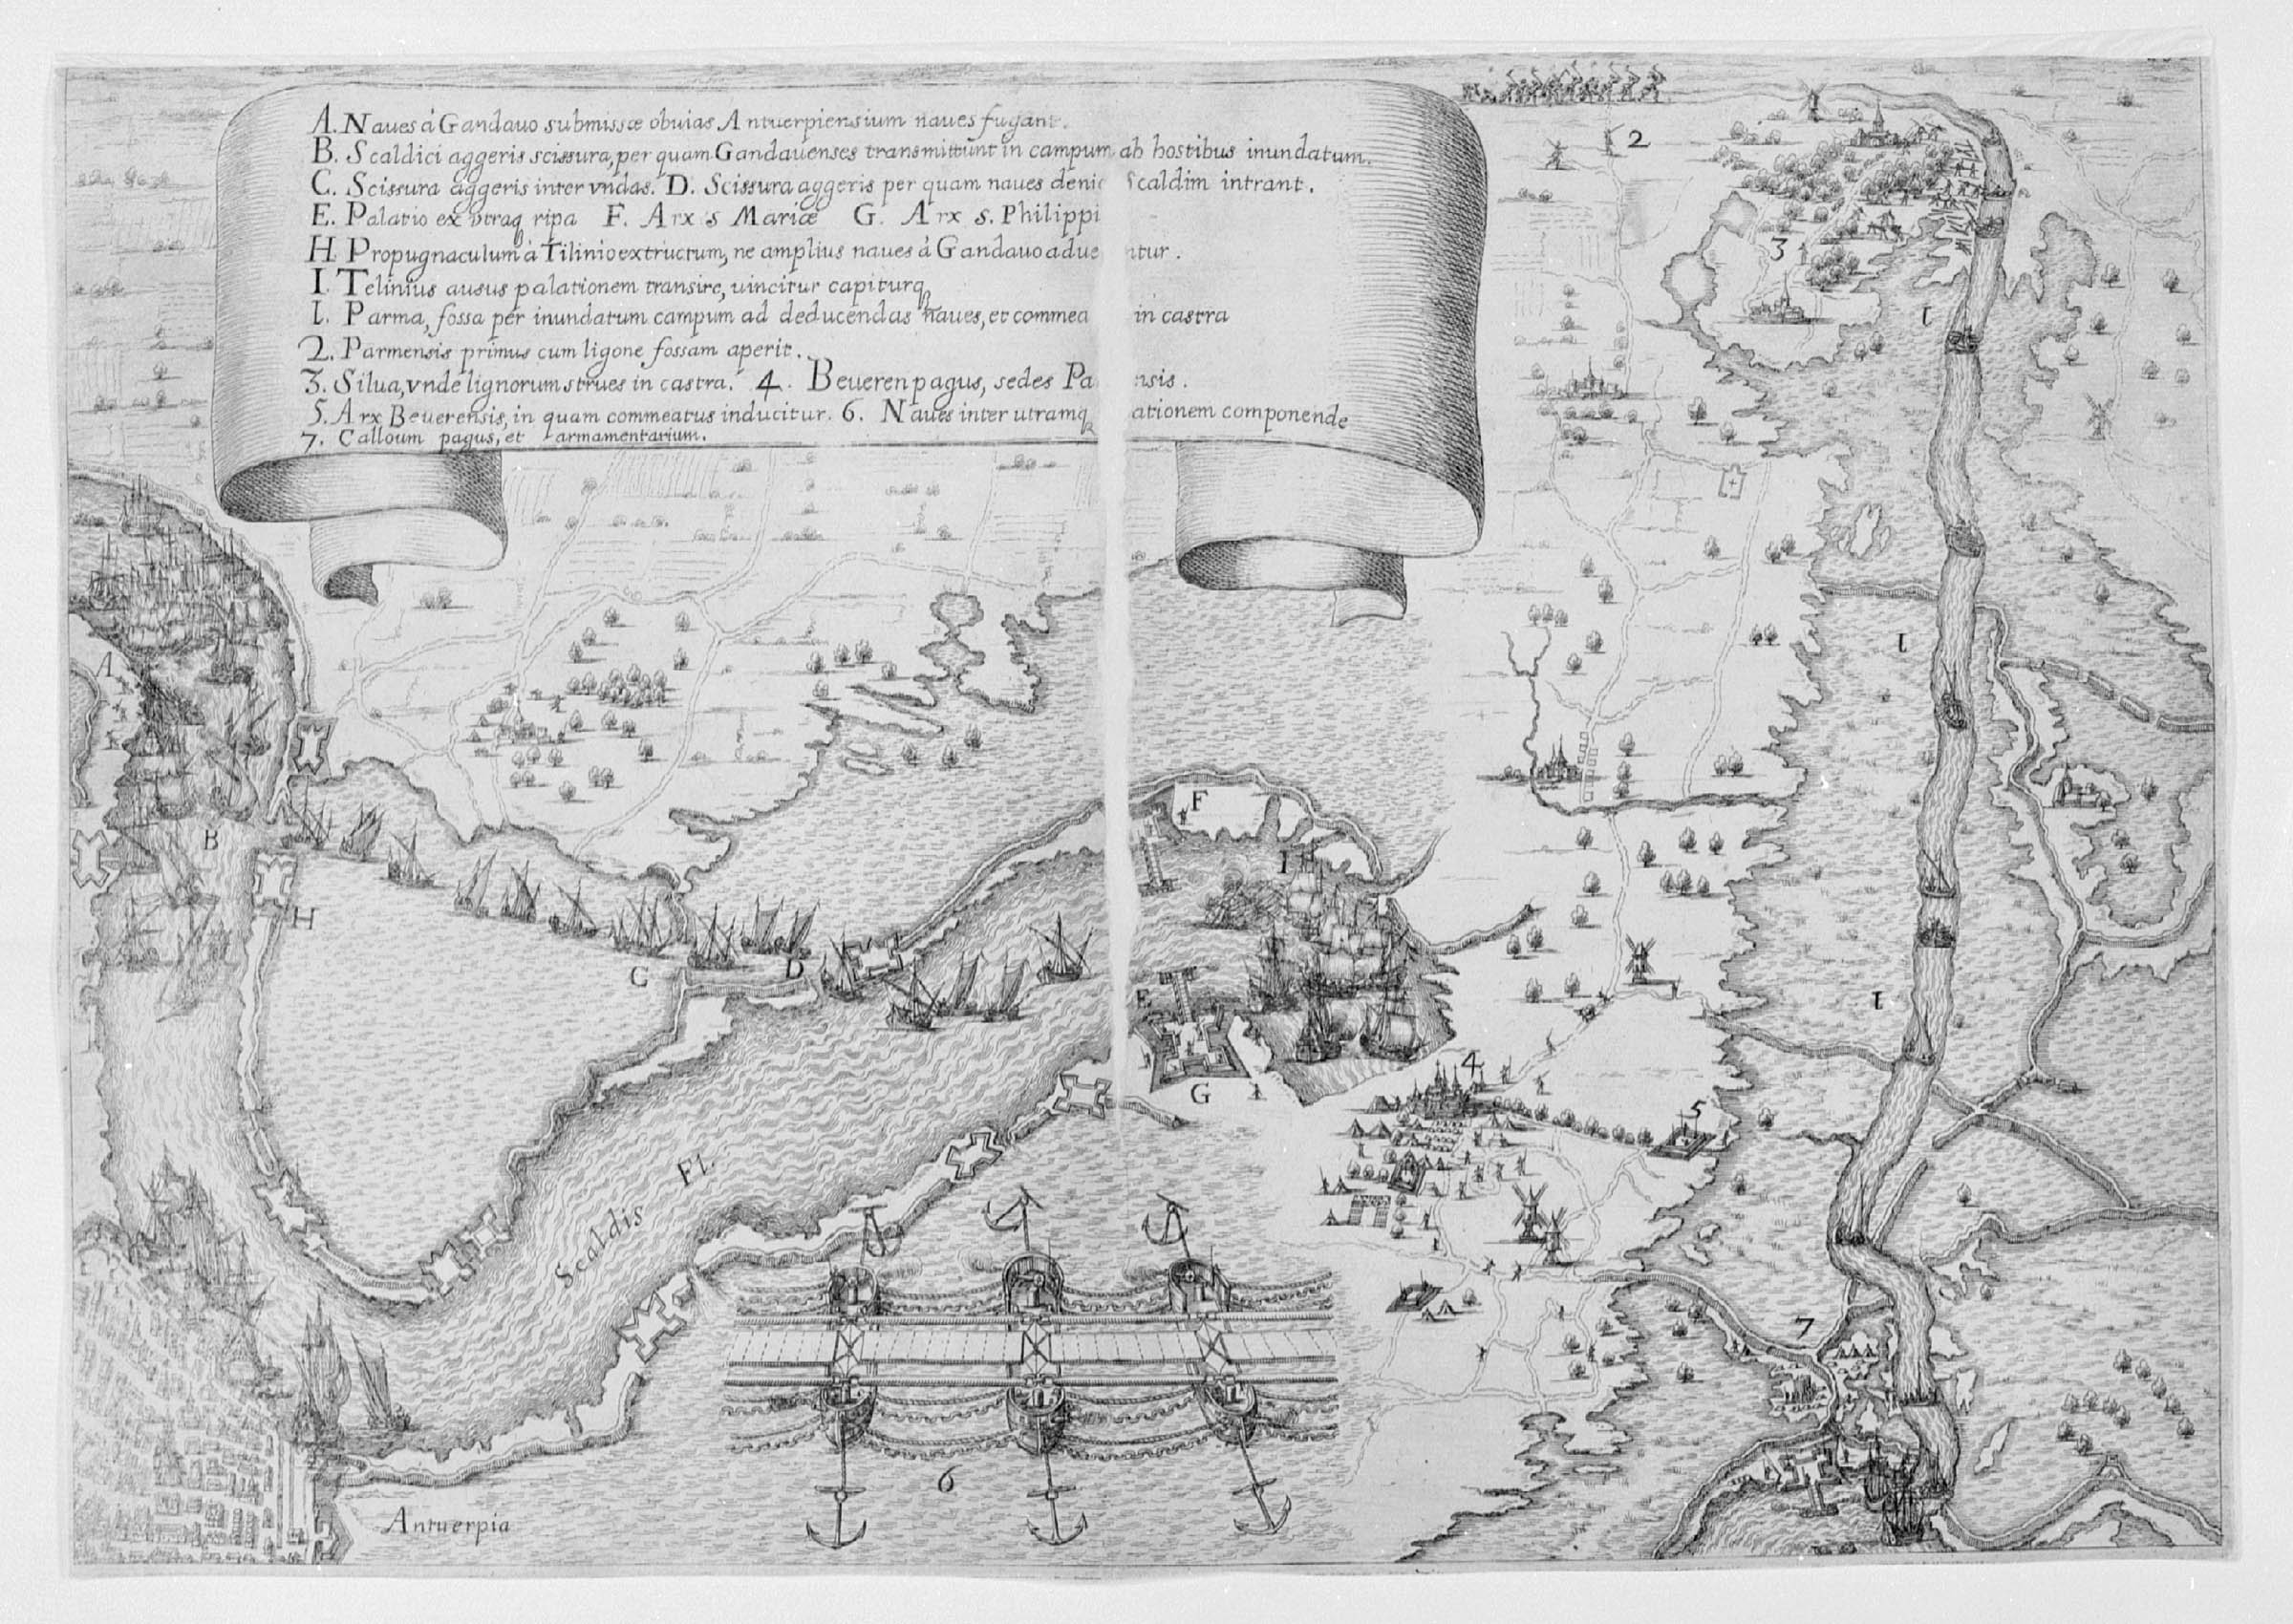 A. Naues à Gandauo submissæ obuias Antuerpiensium naues fugant.
B. Scaldici aggeris scissura, per quam Gandauenses transmittunt in campum ab hostibus inundatum.
C. Scissura aggeris inter vndas. D. Scissura aggeris per quam naues denic Scaldim intrant.
E. Palatio ex vtraq ripa F. Arx s Mariæ G. Arx s. Philippi
H Propugnaculum à Tilinio extructum, ne amplius naues à Gandauo adue ntur.
I. Telinius ausus palationem transire, uincitur capiturq
l. Parma, fossa per inundatum campum ad deducendas naues, et commea in castra
2. Parmensis primus cum ligone fossam aperit.
3. Silua, vnde lignorum strues in castra. 4. Beueren pagus, sedes Pa nsis.
5. Arx Beuerensis, in quam commeatus inducitur. 6. Naues inter utramq ationem componende
7. Calloum pagus, et armamentarium.
2
3
l
l
A
B
F
I
H
C
D
E
l
G
4
5
Scaldis Fl.
7
6
Antuerpia